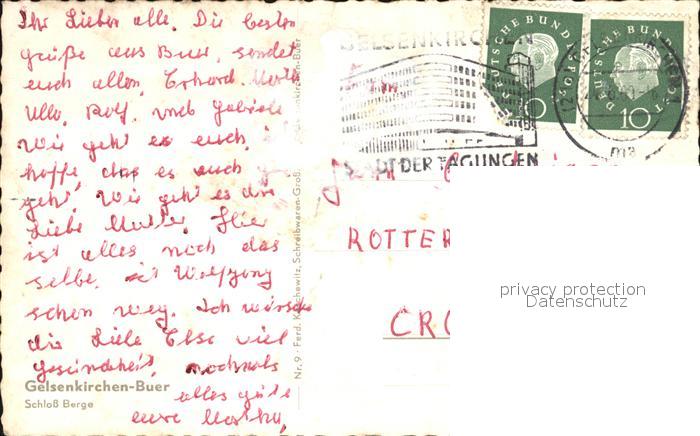 Ihr Lieben alle. Die besten
grüße aus Buer, sendet
euch allen, Erhard
Ulla, Rolf, und Gabriele
Wie geht es euch,
hoffe, das es euch
geht, Wie geht es dir
Liebe Mutter, Hier
ist alles noch das
selbe, ist Wolfgang
schon weg. Ich wünsche
dir Liebe Else viel
gesundheit, nochmals
alles gute
eure
Gelsenkirchen-Buer
Schloß Berge
Nr. 9 · Ferd. Schreibwaren-Groß. Gelsenkirchen-Buer
GELSENKIRCHEN
STADT DER TAGUNGEN
DEUTSCHE BUNDESPOST
10
DEUTSCHE BUNDESPOST
10
ma
ROTTER
CRO
privacy protection
Datenschutz